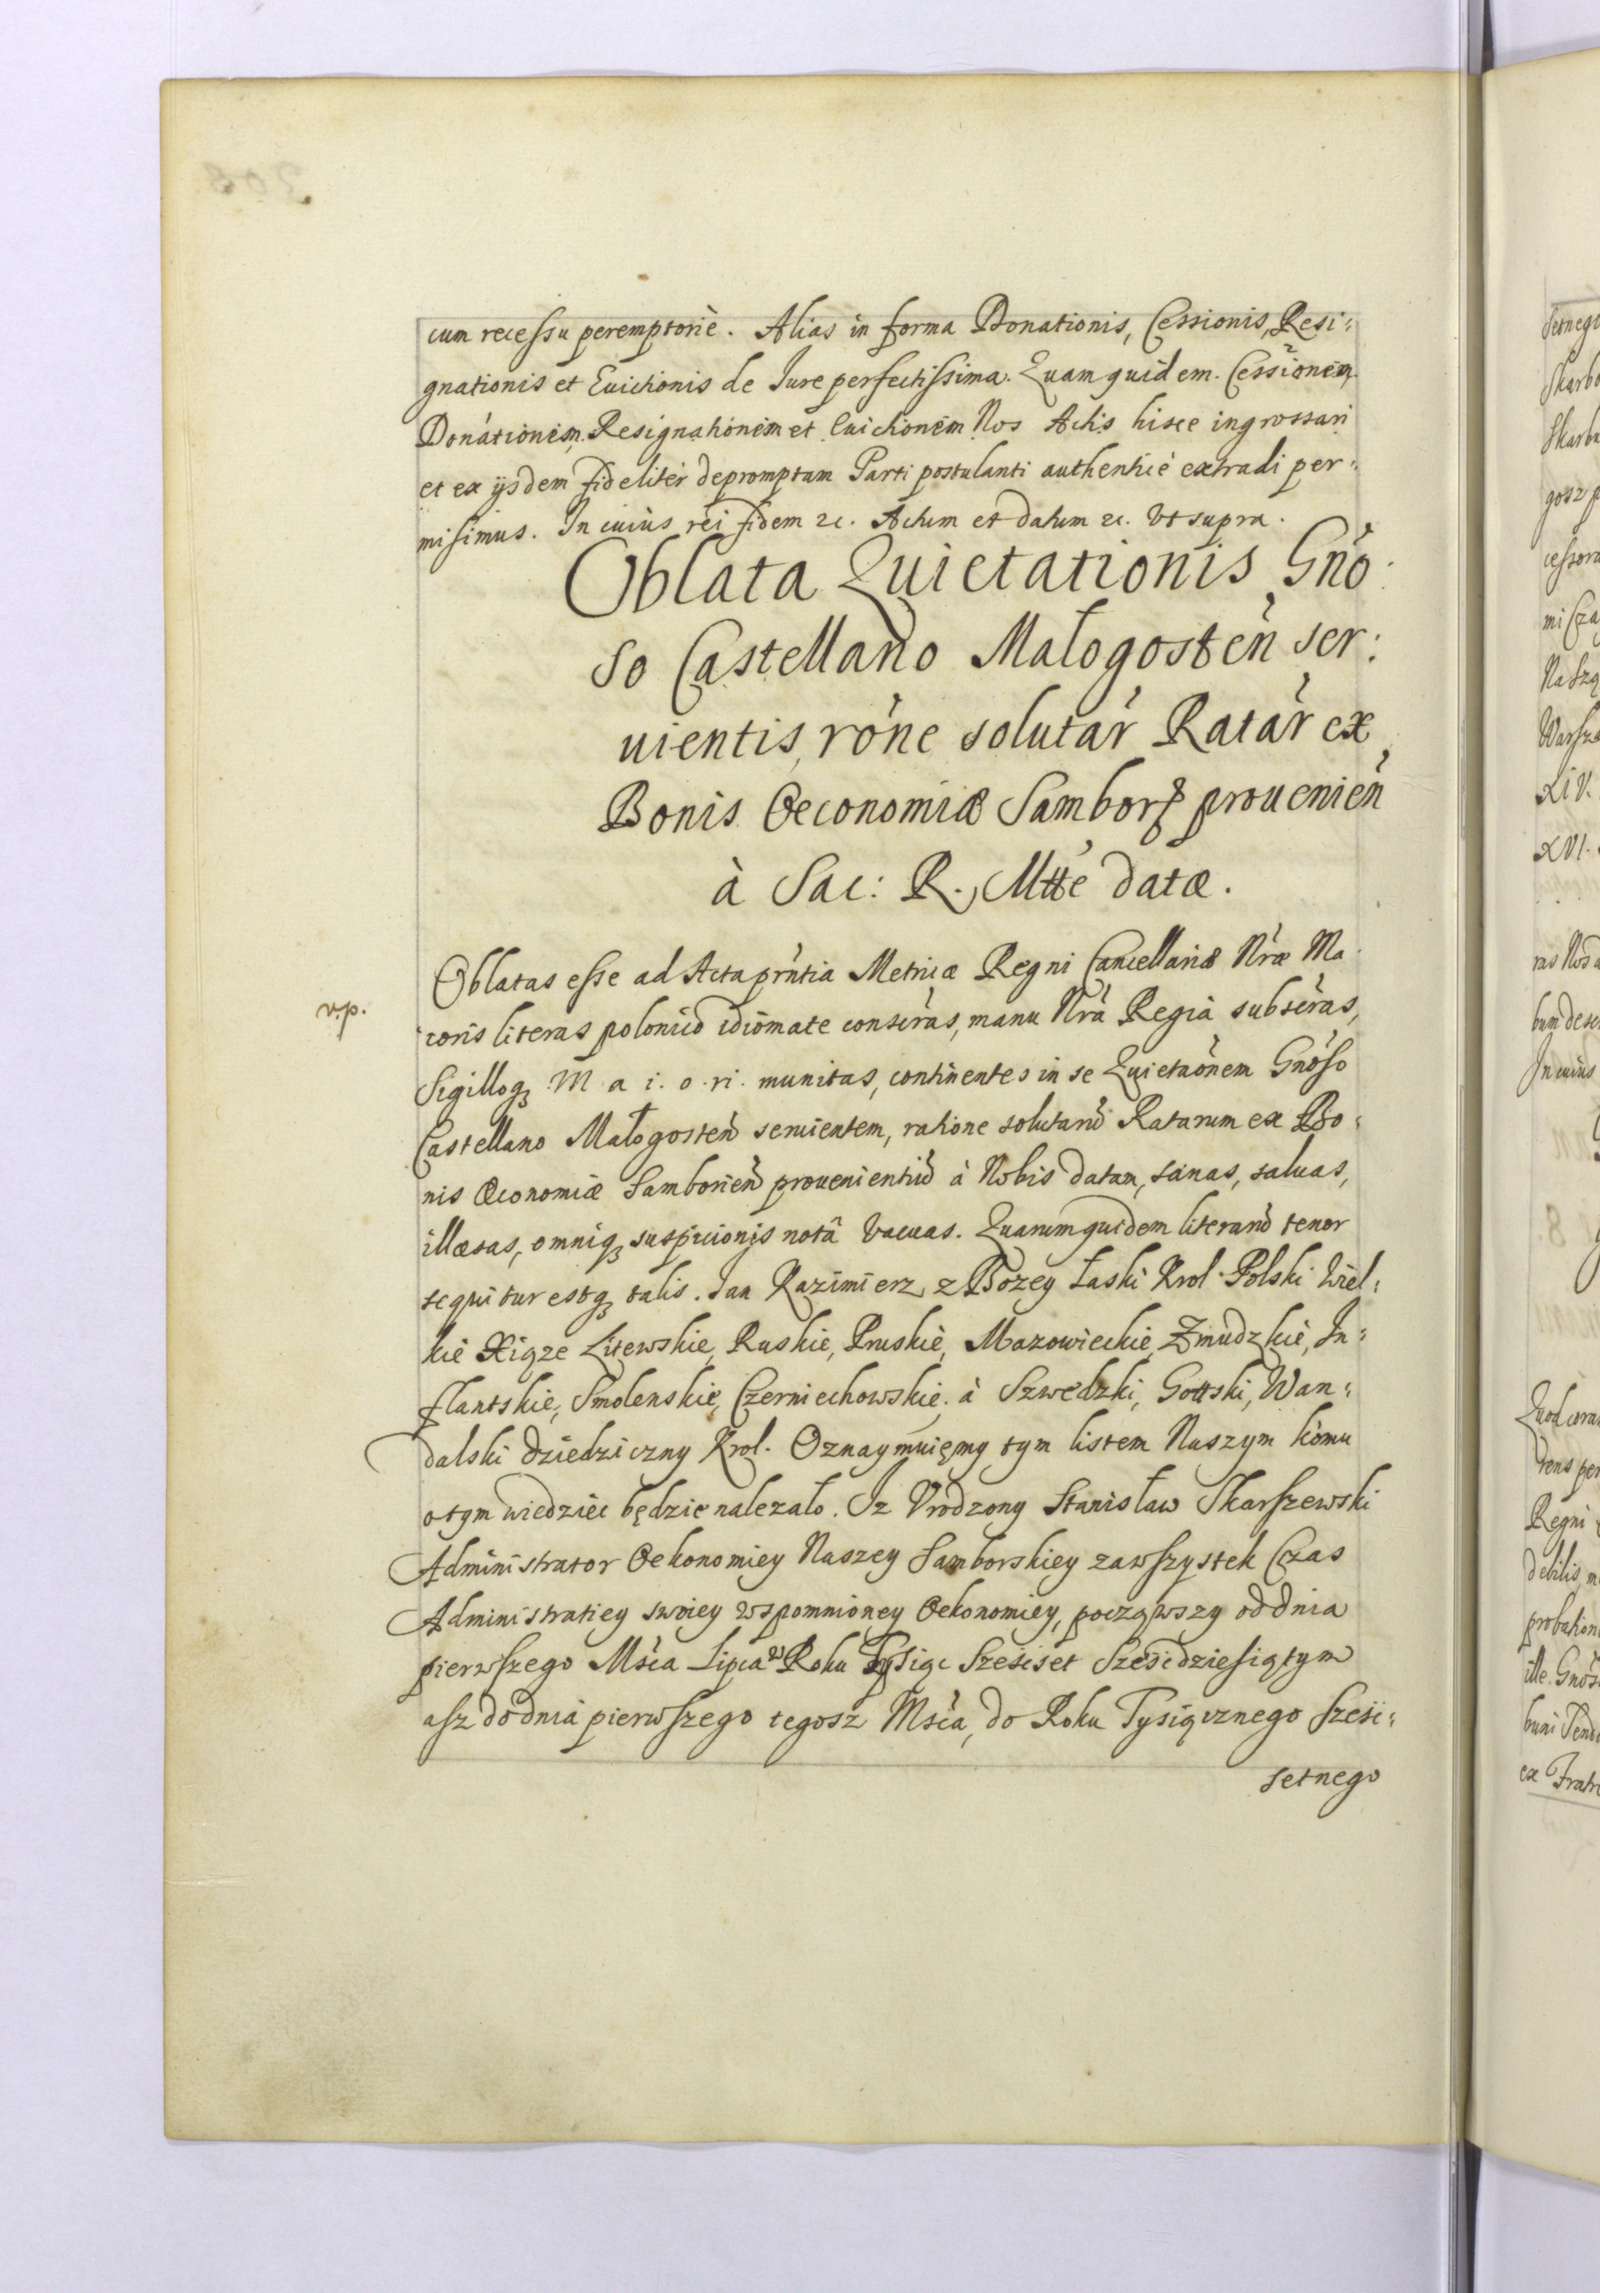 cum recessu peremptoriè. Alias in forma Donationis, Cessionis, Resi:
gnationis et Euictionis de Iure perfectissima. Quam quidem Cessionem
Donationem, Resignationem et Euictionem Nos Actis hisce ingrossari
et ex ijsdem fideliter depromptam Parti postulanti authenticè extradi per:
misimus. In cuius rei fidem &c. Actum et datum &c. Vt supra.
Oblata Quietationis Gno:
so Castellano Małogosteñ ser:
uientis, rone solutar Ratar ex
Bonis Œconomiæ Sambor prouenień
à Sac: R. Mtte datæ.
Oblatas esse ad Acta prntia Metricæ Regni Cancellariæ Nræ Ma
v.p.
ioris literas polonico idiomate conscras, manu Nra Regia subscras,
Sigilloq Maiori munitas, continentes in se Quietaonem Gnoso
Castellano Małogosteñ seruientem, ratione solutarũ Ratarum ex Bo:
nis Œconomiæ Samborieñ prouenientiũ à Nobis datam, sanas, saluas,
illæsas, omniq suspicionis notâ vacuas. Quarum quidem literarũ tenor
sequitur estq talis. Jan Kazimierz z Bozey Łaski Krol Polski Wiel:
kie Xiąze Litewskie, Ruskie, Pruskie, Mazowieckie, Zmudzkie, In:
flantskie, Smolenskie, Czerniechowskie, à Szwedzki, Gottski, Wan:
dalski dziedziczny Krol. Oznaymuięmy tym listem Naszym komu
o tym wiedziec będzie nalezało. Iz Vrodzony Stanisław Skarszewski
Administrator Oekonomiey Naszey Samborskiey za wszystek Czas
Administratiey swoiey wspomnioney Oekonomiey, począwszy od dnia
pierwszego Mśca Lipca w Roku Tysiąc Szescset Szescdziesiątym
asz do dnia pierwszego tegosz Mśca, do Roku Tysiącznego Szesc:
setnego